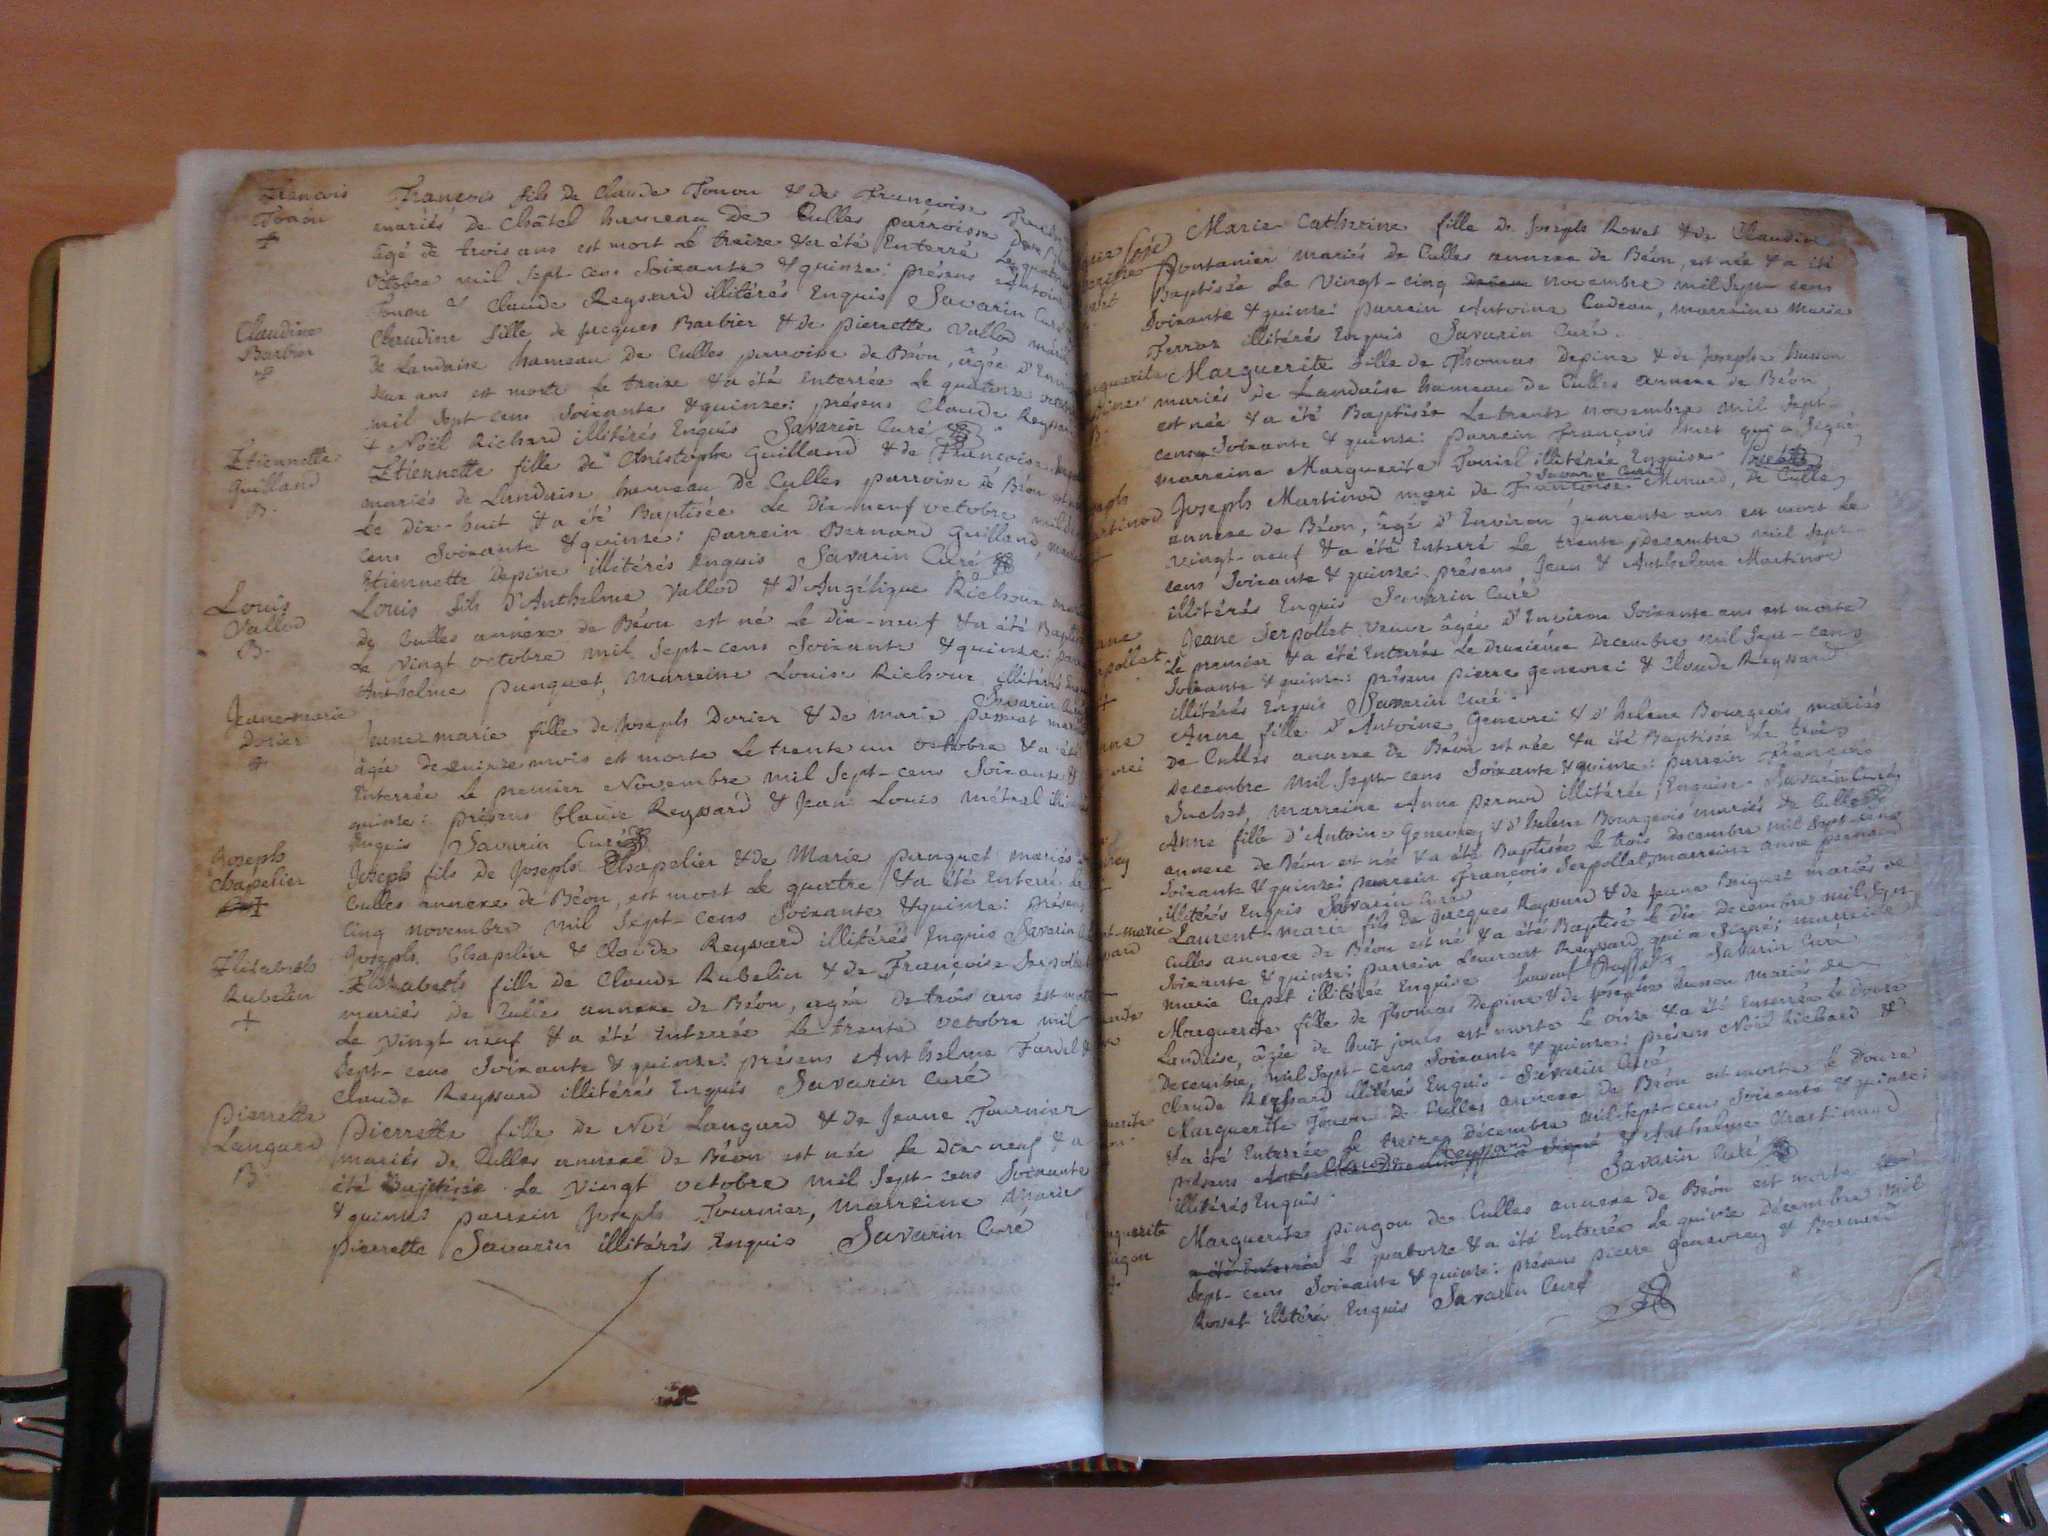 François
Tonon
+
François fils de Claude Tonon & de Françoise
mariés de Châtel hameau de Culles parroisse de
âgé de trois ans est mort le treize & a été Enterré le
octobre mil sept-cens soixante & quinze: présens
& Claude Reyssard illitérés Enquis Savarin Curé
Claudine
Barbier
+
Claudine fille de jacques Barbier & de pierrette Vallod mariés
de Landaise hameau de Culles parroisse de Béon, âgée d'Environ
deux ans est morte le treize & a été Enterrée le quatorze octobre
mil sept-cens soixante & quinze: présens Claude Reyssard
& Noël Richard illitérés Enquis Savarin Curé
Etiennette
Guilland
B.
Etiennette fille de Christophe Guilland & de Françoise
mariés de Landaise hameau de Culles parroisse de Béon est née
le Dix-huit & a été Baptisée le Dix-neuf octobre mil sept
cens soixante & quinze: parrein Bernard Guilland,
Etiennette Depine illitérés Enquis Savarin Curé
Louis
Vallod
B.
Louis fils d'Anthelme Vallod & d'Angélique Richoux
de Culles annexe de Béon est né le dix-neuf & a été Baptisé
le vingt octobre mil sept-cens soixante & quinze:
Anthelme punguet, marreine Louise Richoux illitérés
Savarin Curé
Jeane-marie
Dorier
+
Jeane marie fille de Joseph Dorier & de marie passat
âgée de quinze mois est morte le trente un octobre & a été
Enterrée le premier Novembre mil sept-cens soixante &
quinze: présens Claude Reyssard & Jean Louis métral
Enquis Savarin Curé
Joseph
Chapelier
+
Joseph fils de Joseph Chapelier & de Marie punguet mariés
Culles annexe de Béon, est mort le quatre & a été Enterré le
cinq novembre mil sept-cens soixante & quinze: présens
Joseph Chapelier & Claude Reyssard illitérés Enquis Savarin
Elisabeth
Rubelin
+
Elisabeth fille de Claude Rubelin & de Françoise Serpollet
mariés de Culles annexe de Béon, âgée de trois ans est morte
le vingt neuf & a été Enterrée le trente octobre mil
sept-cens soixante & quinze: présens Anthelme Fardel &
Claude Reyssard illitérés Enquis Savarin Curé
Pierrette
Langard
B.
Pierrette fille de Noé Langard & de Jeane Fournier
mariés de Culles annexe de Béon est née le dix neuf & a
été Baptisée le vingt octobre mil sept-cens soixante
& quinze parrein Joseph Fournier, marreine Marie
pierrette Savarin illitérés Enquis Savarin Curé
Marie Catherine fille de Joseph Rosset & de Claudine
Pontanier mariés de Culles annexe de Béon, est née & a été
Baptisée le vingt-cinq novembre mil sept-cens
soixante & quinze: parrein Antoine Cadeau, marreine Marie
Ferroz illitérés Enquis Savarin Curé.
Marguerite fille de Thomas Depine & de Josephe husson
mariés de Landaise hameau de Culles annexe de Béon,
est née & a été Baptisée le trente novembre mil sept-
cens soixante & quinze: parrein François huet qui a signé,
marreine Marguerite illitérée Enquise
Savarin Curé
Joseph Martinod mari de Françoise Minard, de Culles
annexe de Béon, âgé d'Environ quarante ans est mort le
vingt-neuf & a été Enterré le trente Decembre mil sept-
cens soixante & quinze: présens Jean & Anthelme Martinod
illitérés Enquis Savarin Curé
Jeane Serpollet veuve âgée d'Environ soixante ans est morte
le premier & a été Enterrée le Deuxième Decembre mil sept-cens
soixante & quinze: présens pierre genevrei & Claude Reyssard
illitérés Enquis Savarin Curé.
Anne fille d'Antoine Genevrei & d'helene Bourgeois mariés
de Culles annexe de Béon est née & a été Baptisée le trois
decembre mil sept-cens soixante & quinze: parrein François
marreine Anne pernod illitérée Enquise Savarin Curé
Anne fille d'Antoine Genevrey & d'helene Bourgeois mariés de Culles
annexe de Béon est née & a été Baptisée le trois decembre mil sept-cens
soixante & quinze: parrein François Serpollat, marreine anne pernod
illitérés Enquis Savarin Curé
Laurent-marie fils de jacques Reyssard & de jeane Briguet mariés de
Culles annexe de Béon est né & a été Baptisé le dix Decembre mil sept-
soixante & quinze: parrein Laurent Reyssard qui a signé; marreine
marie Capet illitérée Enquise Savarin Curé
Marguerite fille de Thomas Depine & de Josephe husson mariés de
Landaise, âgée de huit jours est morte le onze & a été Enterrée le douze
Decembre, mil sept-cens soixante & quinze: présens Noël Richard &
Claude Reyssard illitérés Enquis Savarin Curé
Marguerite Tonon de Culles annexe de Béon est morte le Douze
& a été Enterrée le treize décembre mil sept-cens soixante & quinze:
présens Claude Reyssard & Anthelme Martinod
illitérés Enquis. Savarin Curé
Marguerite pingon de Culles annexe de Béon est morte
a été Enterrée le quatorze & a été Enterrée le quinze Décembre mil
sept-cens soixante & quinze: présens pierre genevrey & Bernard
Rosset illitérés Enquis Savarin Curé